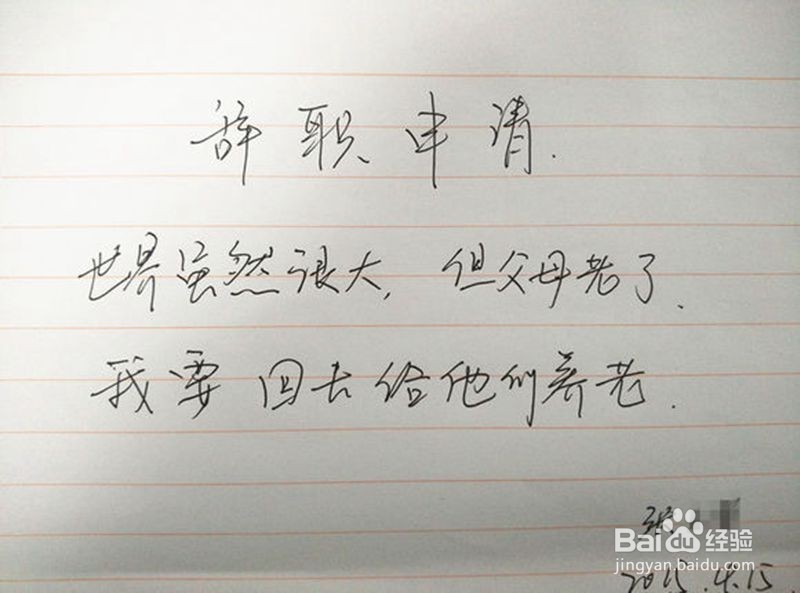 辞职申请.
世界虽然很大,但父母老了.
我要回去给他们养老.
张
Baidu经验
jingyan.baidu.com
2015.4.15